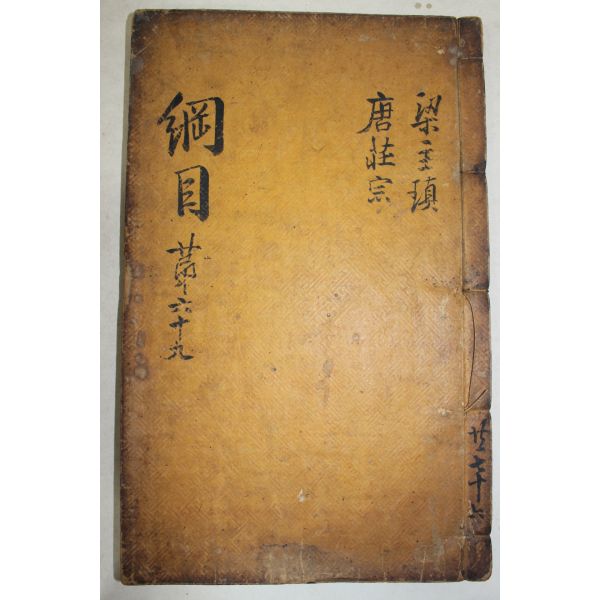 梁主瑱
唐荘宗
綱目 第六十九
共七十六